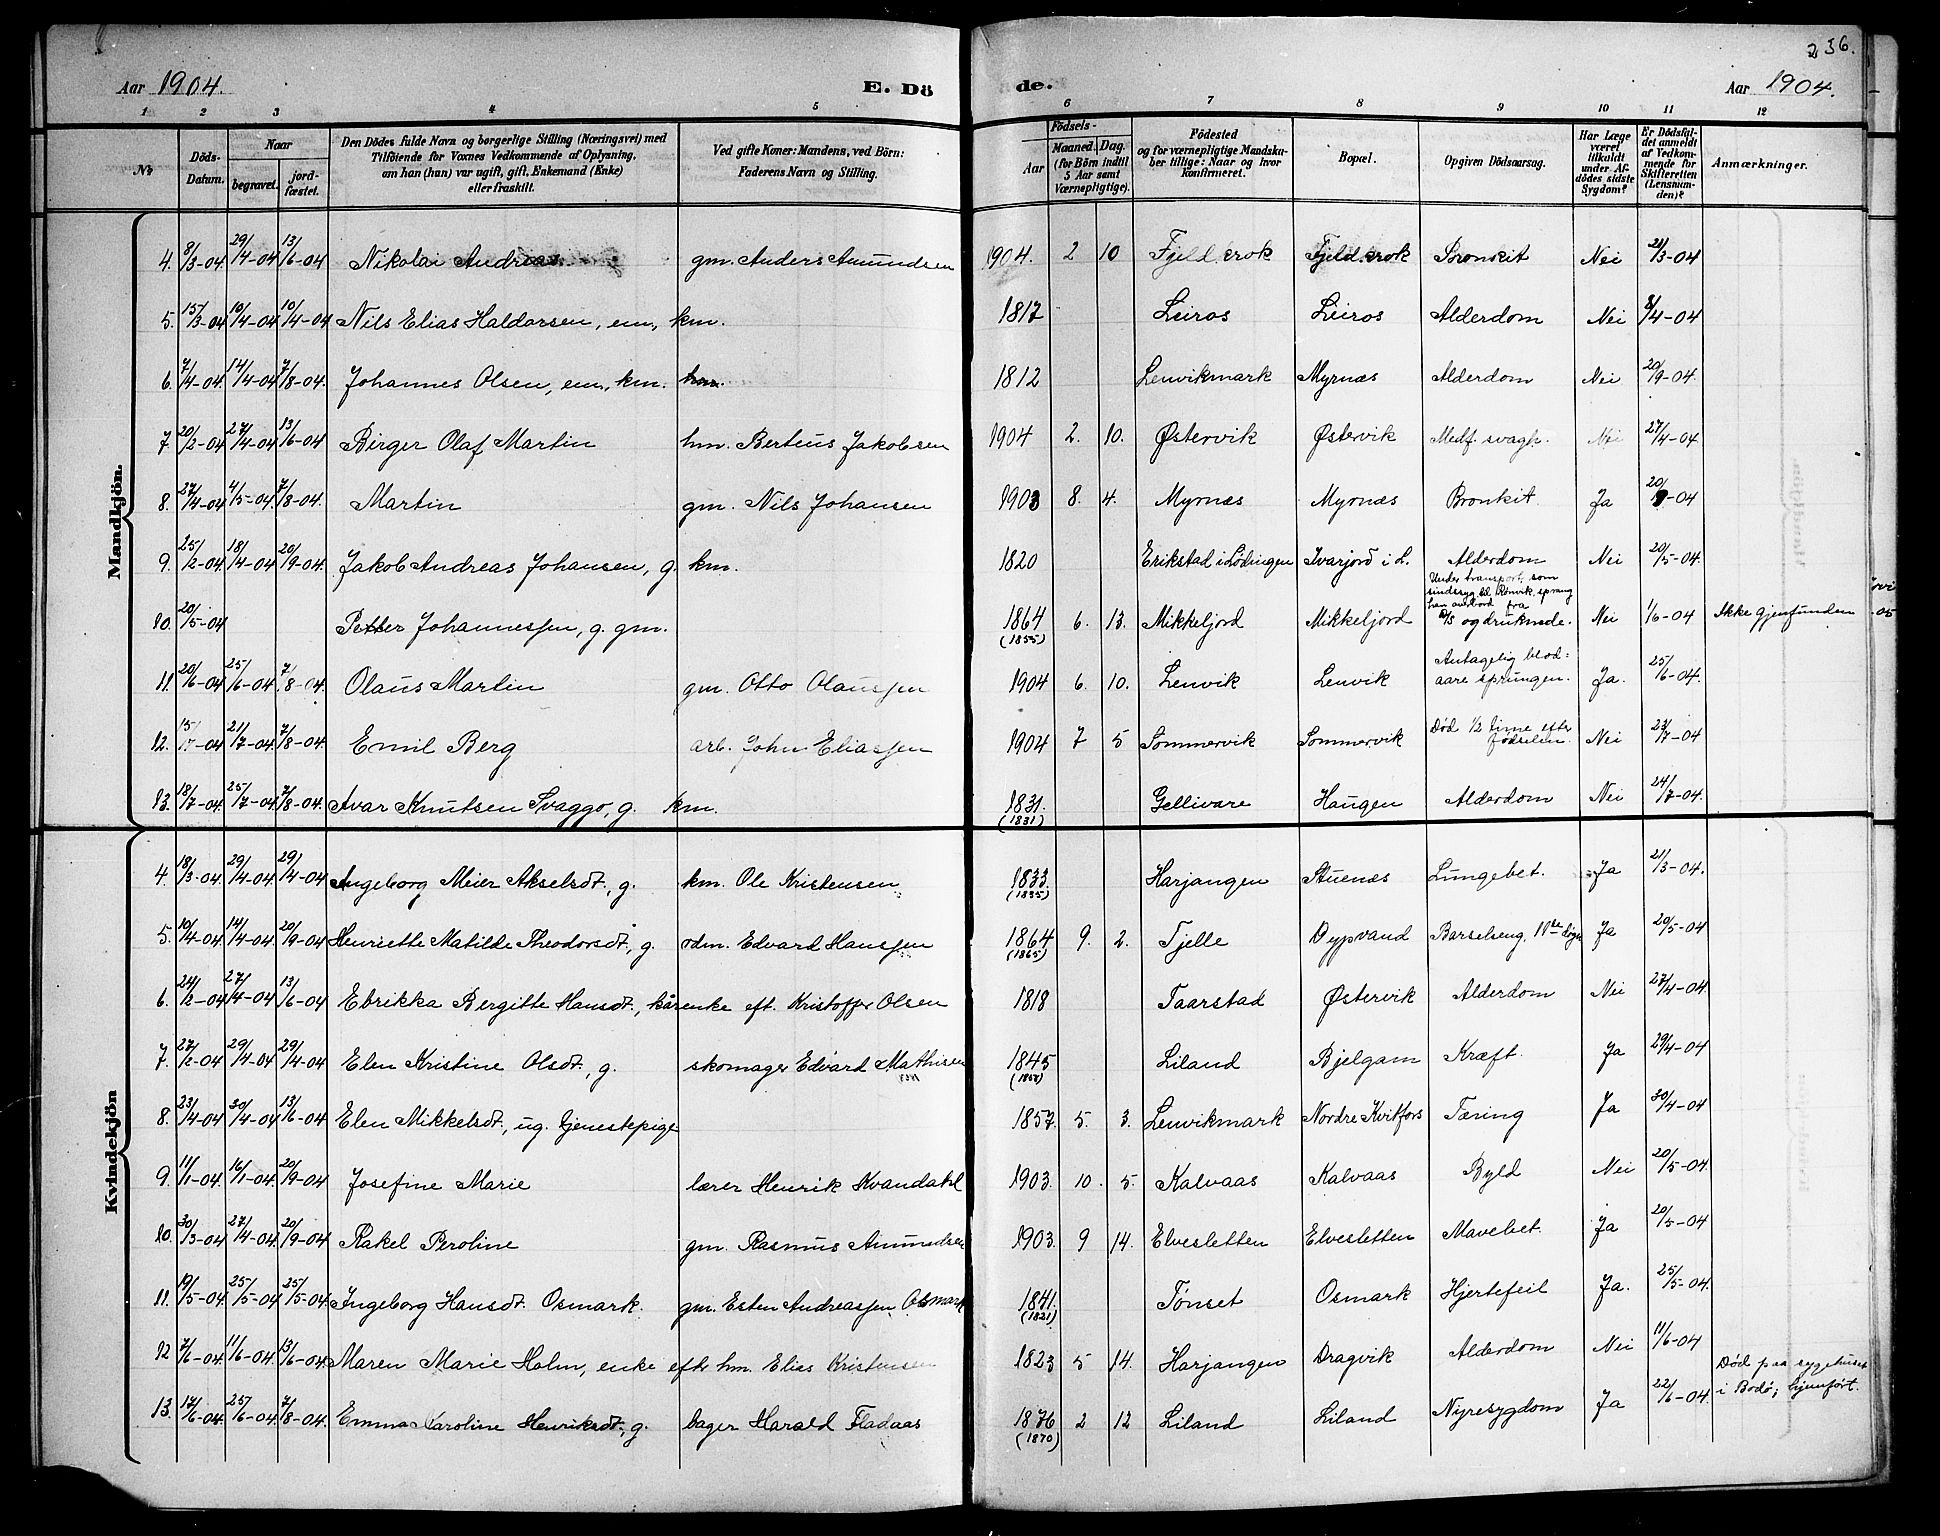 236.
Aar 1904. E. Dö de. Aar 1904.
1 2 3 4 5 6 7 8 9 10 11 12
No
Döds-Datum.
Naar
begravet. jord-fæstet.
Den Dödes fulde Navn og borgerlige Stilling (Næringsvei) med
Tilföiende for Voxnes Vedkommende af Oplysning,
om han (hun) var ugift, gift, Enkemand (Enke)
eller fraskilt.
Ved gifte Koner: Mandens, ved Börn:
Faderens Navn og Stilling.
Födsels-
Aar
Maaned. Dag.
(for Börn indtil
5 Aar samt
Værnepligtige).
Födested
og for værnepligtige Mandska-
ber tillige: Naar og hvor
konfirmeret.
Bopæl.
Opgiven Dödsaarsag.
Har Læge
været
tilkaldt
under Af-
dödes sidste
Sygdom?
Er Dödsfal-
det anmeldt
af Vedkom-
mende for
Skifteretten
(Lensman-
den)?
Anmærkninger.
Mandkjön.
4. 8/3-04 29/4-04 13/6-04 Nikolai Andreas gm. Anders Amundsen 1904. 2 10 Fjeldkrok Fjeldkrok Bronkit Nei 21/3-04
5. 15/3-04 10/4-04 10/4-04 Nils Elias Haldorsen, em, km. 1817 Leiros Leiros Alderdom Nei 8/4-04
6. 7/4-04 14/4-04 7/8-04. Johannes Olsen, em, km. 1812 Lenvikmark Myrnæs Alderdom Nei 20/9-04.
7 20/2-04 27/4-04 13/6-04 Birger Olaf Martin hm. Berteus Jakobsen 1904 2. 10. Østervik Østervik Medf. svagh. Nei 27/4-04
8. 27/4-04 4/5-04 7/8-04. Martin gm. Nils Johansen 1903 8. 4. Myrnæs Myrnæs Bronkit Ja 20/9-04
9. 25/2-04 18/4-04 20/9-04 Jakob Andreas Johansen, g. km. 1820 Erikstad i Lødingen Ivarjord i L. Alderdom Nei 20/5-04.
10. 20/5-04 Petter Johannessen, g. gm. 1864 (1855) 6. 13. Mikkeljord Mikkeljord Under transport, som
sindssyg til Rønvik, sprang
han ombord fra
D/S og druknede. Nei 1/6-04 Ikke gjenfunden
11. 20/6-04 25/6-04. 7/8-04. Olaus Martin gm. Otto Olaussen 1904 6. 10. Lenvik Lenvik Antagelig blod=
aare sprungen. Ja. 25/6-04.
12. 15/7-04 21/7-04 7/8-04. Emil Berg arb. John Eliassen 1904 7 5 Sommervik Sommervik Død 1/2 time efter
fødselen. Nei 23/7-04
13. 18/7-04 25/7-04 7/8-04. Ivar Knutsen Svaggo, g. km. 1831. (1831) Gellivare Haugen Alderdom Nei 24/7-04.
Kvindekjön
4. 18/3-04 29/4-04 29/4-04 Ingeborg Meier Akselsdt., g. km. Ole Kristensen 1833. (1835) Harjangen Stuenæs Lungebet. Ja 21/3-04.
5. 10/4-04 14/4-04. 20/9-04 Henriette Matilde Theodorsdt, g. odm. Edvard Hanssen 1864 (1865) 9. 2. Tjelle Dypvand Barselseng. Ja 20/5-04
6. 24/2-04 27/4-04 13/6-04 Ebrikka Bergitte Hansdt., kårenke eft. Kristoffer Olsen 1818 Taarstad Østervik Alderdom Nei 27/4-04.
7. 27/2-04 29/4-04 29/4-04 Elen Kristine Olsdt., g. skomager Edvard Mathisen 1845 Liland Bjelgam Kræft. Ja 29/4-04
8. 23/4-04 30/4-04 13/6-04 Elen Mikkelsdt., ug. tjenestepige 1857. 5. 3. Lenvikmark Nordre Kvitfors Tæring Ja 30/4-04
9. 11/1-04. 16/1-04. 20/9-04 Josefine Marie lærer Henrik Kvandahl 1903. 10. 5. Kalvaas Kalvaas Byld Nei 20/5-04.
10. 30/3-04 27/4-04. 20/9-04 Rakel Peroline gm. Rasmus Amundsen 1903. 9 14. Elvesletten Elvesletten Mavebet. Ja 20/5-04.
11. 19/5-04 25/5-04 25/5-04. Ingeborg Hansdt. Osmark. gm. Esten Andreassen Osmark 1841. (1821) Tønset Osmark Hjertefeil Ja. 25/5-04.
12 7/6-04. 11/6-04. 13/6-04. Maren Marie Holm, enke efter hm. Elias Kristensen 1823 5 14. Harjangen Dragvik Alderdom Nei 11/6-04
13. 17/6-04. 25/6-04. 7/8-04. Emma Karoline Henriksdt., g. bager Harald Fladaas 1876 (1870) 2 12 Liland Liland Nyresygdom Ja 22/6-04. Død paa sygehuset
i Bodø; hjemført.